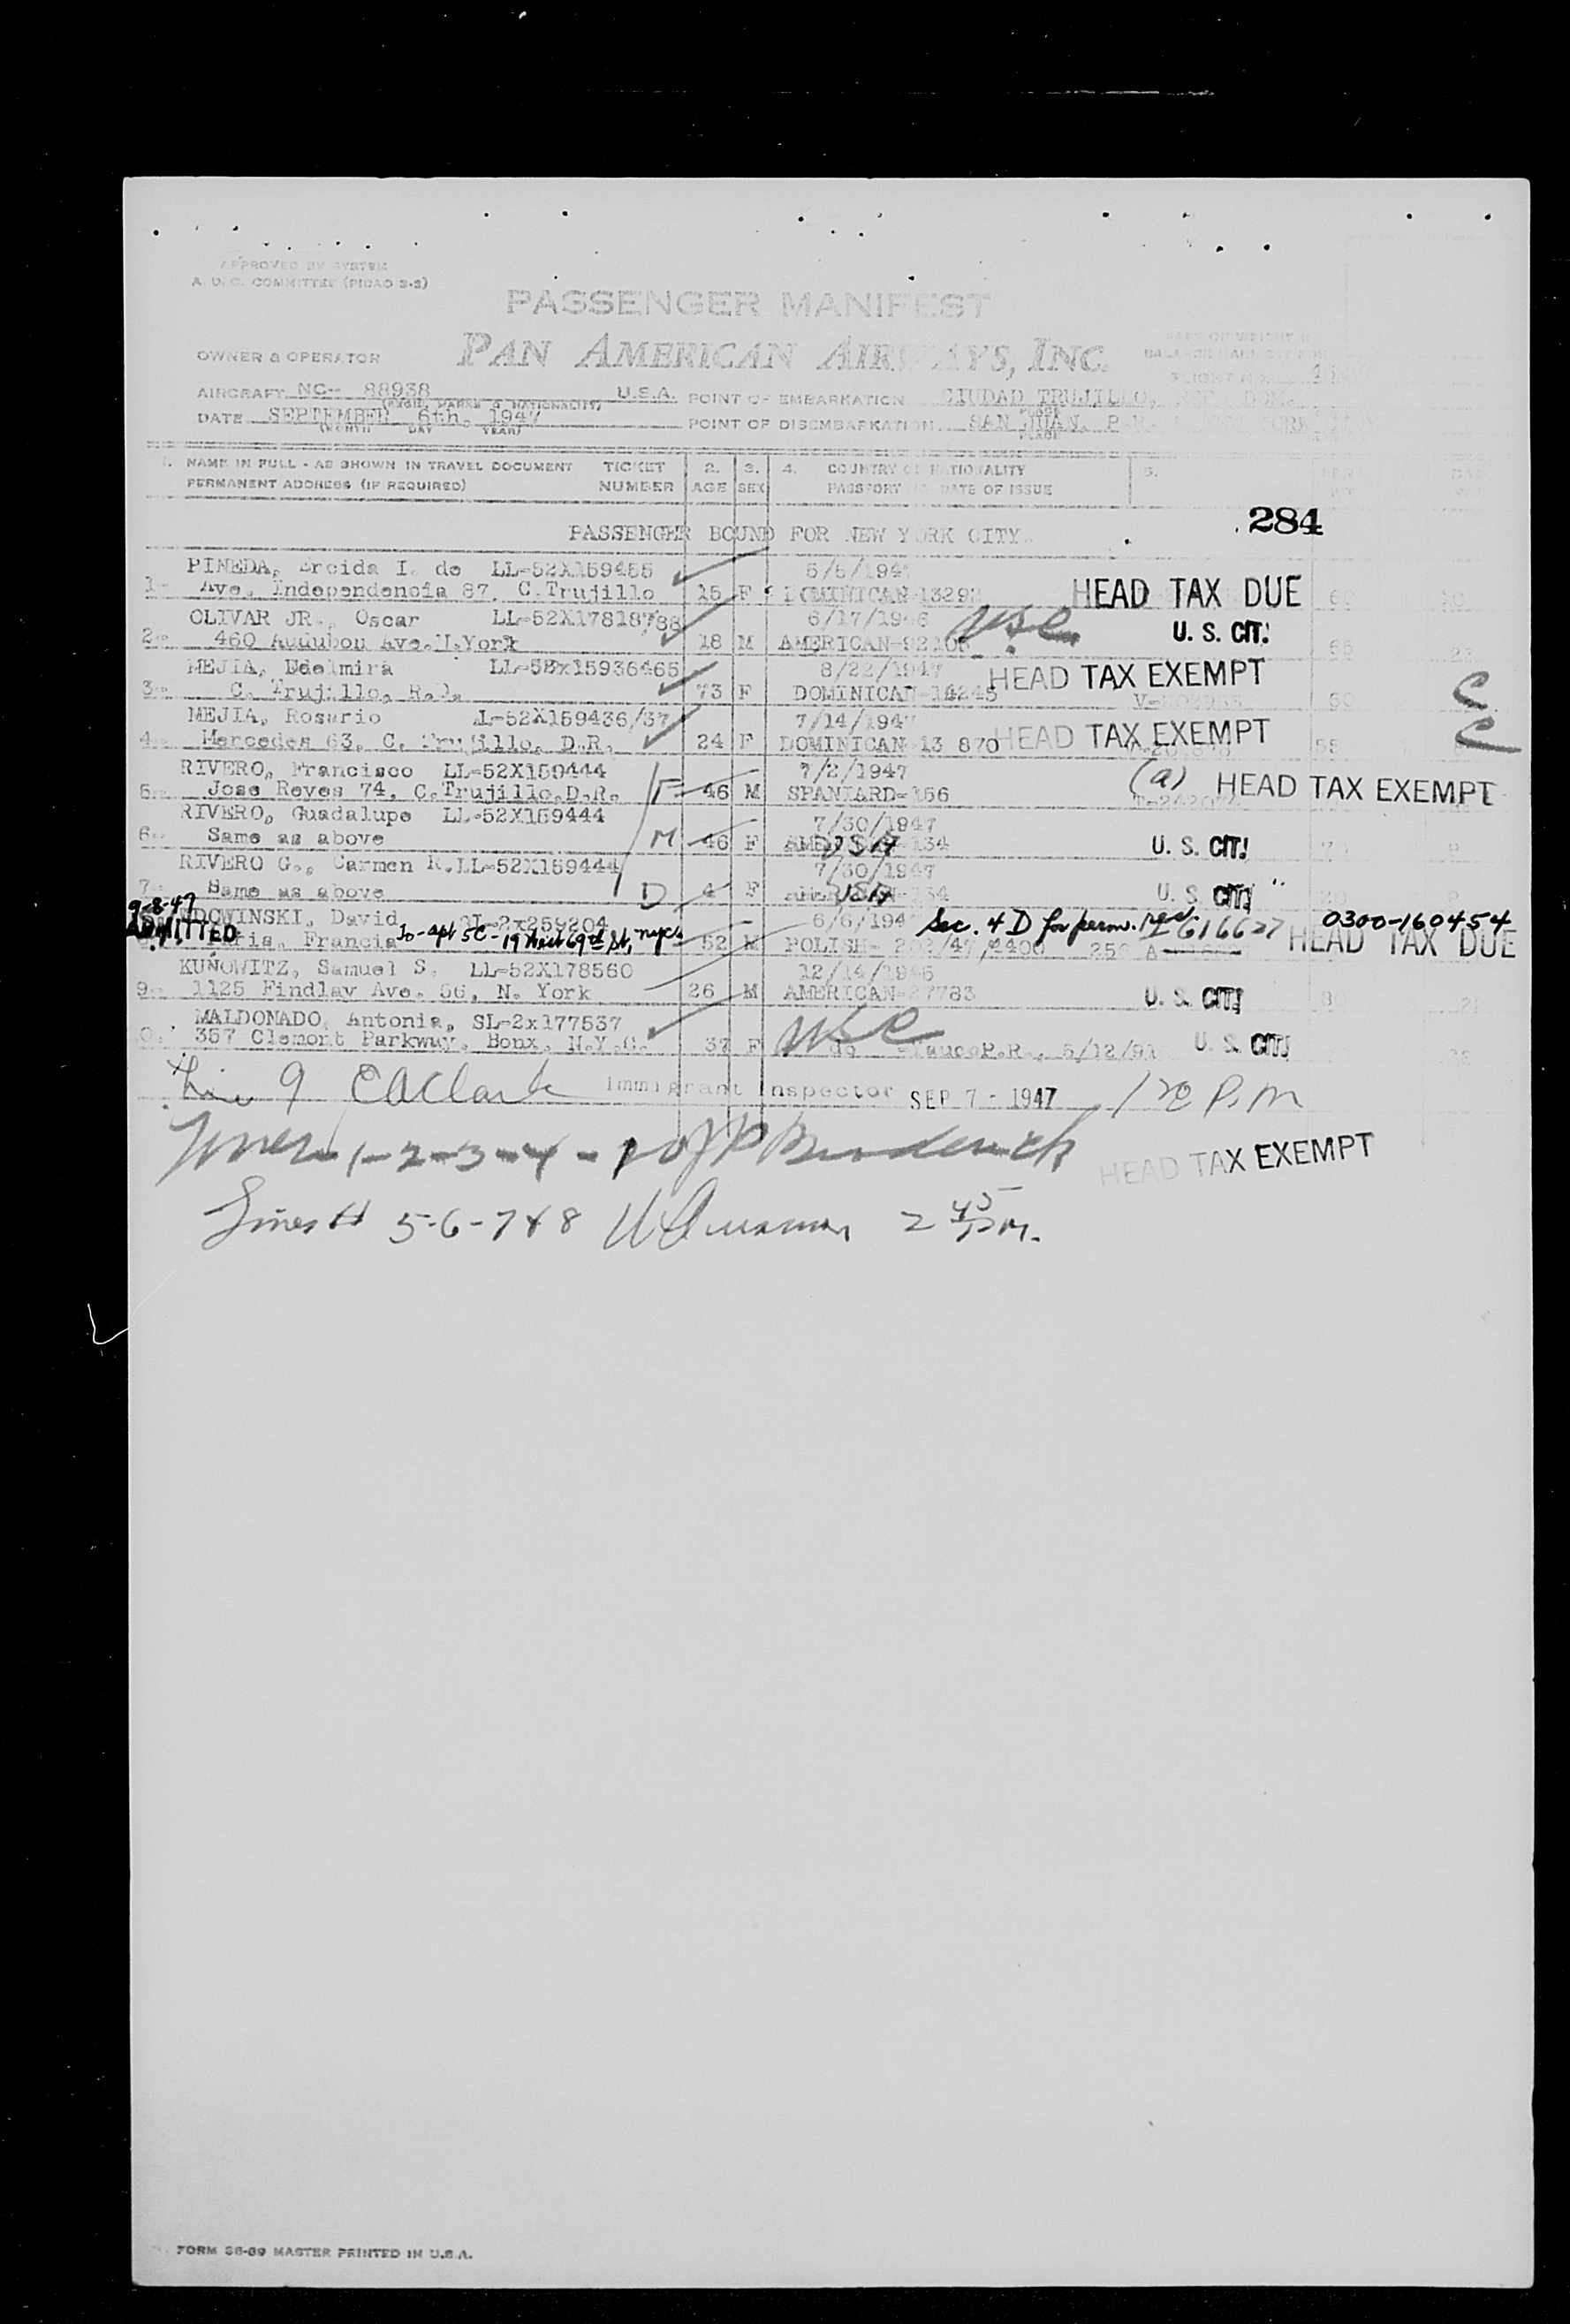 APPROVED BY SYSTEM
A. D. C. COMMITTEE (PICAO 2-2)
PASSENGER MANIFEST
OWNER & OPERATOR PAN AMERICAN AIRWAYS, INC.
AIRCRAFT NC-- 88938 U.S.A. POINT OF EMBARKATION CIUDAD TRUJILLO, REP. DOM.
DATE SEPTEMBER 6th, 1947 POINT OF DISEMBARKATION SAN JUAN, P.R.
(MONTH DAY YEAR) PLACE
1. NAME IN FULL - AS SHOWN IN TRAVEL DOCUMENT TICKET 2. 3. 4. COUNTRY OF NATIONALITY 5.
PERMANENT ADDRESS (IF REQUIRED) NUMBER AGE SEX PASSPORT DATE OF ISSUE
284
PASSENGER BOUND FOR NEW YORK CITY.
PINEDA, Ercida I. de LL-52X159455 5/5/194
1 Ave. Independencia 87, C.Trujillo 15 F DOMINICAN-1329 HEAD TAX DUE
OLIVAR JR., Oscar LL-52X17818788 6/17/1946 USC U. S. CIT.
2 460 Audubon Ave. N.York 18 M AMERICAN-92106
MEJIA, Edelmira LL-52x15936465 8/22/1947 HEAD TAX EXEMPT
3 C. Trujillo, R.D. 73 F DOMINICAN-14245
MEJIA, Rosario L-52X159436/37 7/14/1947
4 Mercedes 63, C. Trujillo, D.R. 24 F DOMINICAN-13 870 HEAD TAX EXEMPT
RIVERO, Francisco LL-52X159444 7/2/1947
5 Jose Reyes 74, C.Trujillo,D.R. F 46 M SPANIARD-156 (a) HEAD TAX EXEMPT
RIVERO, Guadalupe LL-52X159444 7/30/1947
6 Same as above M 46 F USA 134 U. S. CIT.
RIVERO G., Carmen R. LL-52X159444 7/30/1947
7 Same as above D 4 F USA 134 U. S. CIT. "
9-8-47 DOWINSKI, David 2x259204 6/6/194 Sec. 4 D for perm. res. I 616627 0300-160454
ADMITTED Francia To - apt 5C - 19 West 69th St, nyc 52 M POLISH- HEAD TAX DUE
KUNOWITZ, Samuel S. LL-52X178560 12/14/1946
9 1125 Findlay Ave. 56, N. York 26 M AMERICAN-27783 U. S. CIT.
MALDONADO, Antonia, SL-2x177537 USC
0. 357 Clemont Parkway, Bonx, N.Y.C. 37 F do Yauco P.R., 5/12/91 U. S. CIT.
Line 9 EA Clark Immigrant Inspector SEP 7 - 1947 P.M
Lines 1-2-3-4-10 HEAD TAX EXEMPT
Lines # 5-6-7 & 8 2 45 P.M.
FORM 36-69 MASTER PRINTED IN U.S.A.